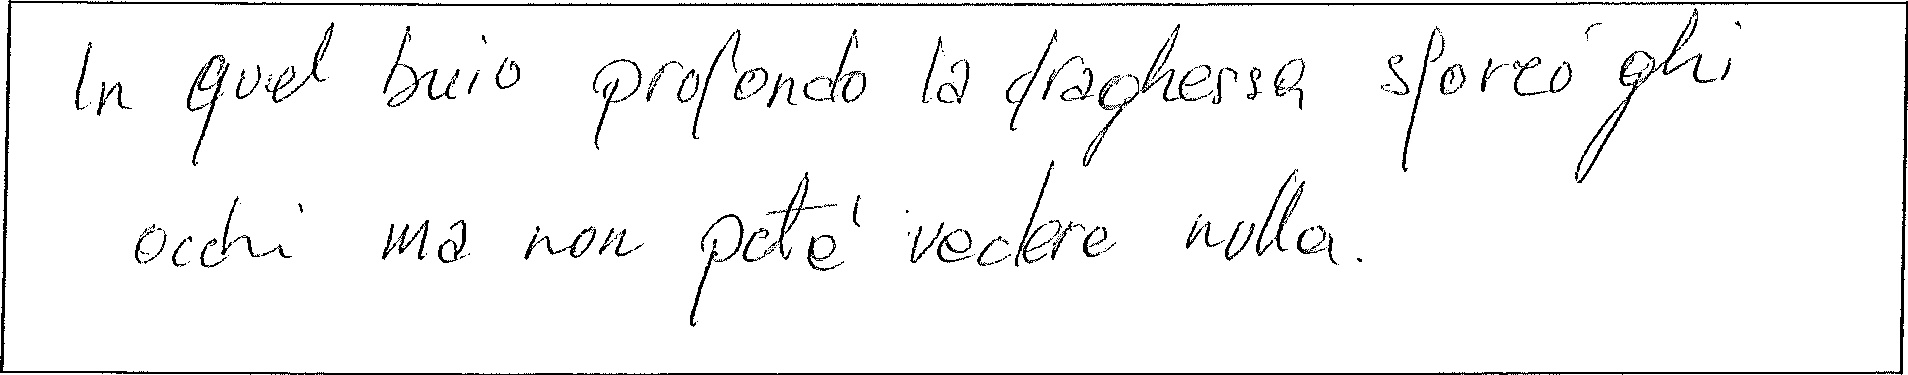 In quel buio profondo la draghessa sforzò ghi
occhi ma non poté vedere nulla.